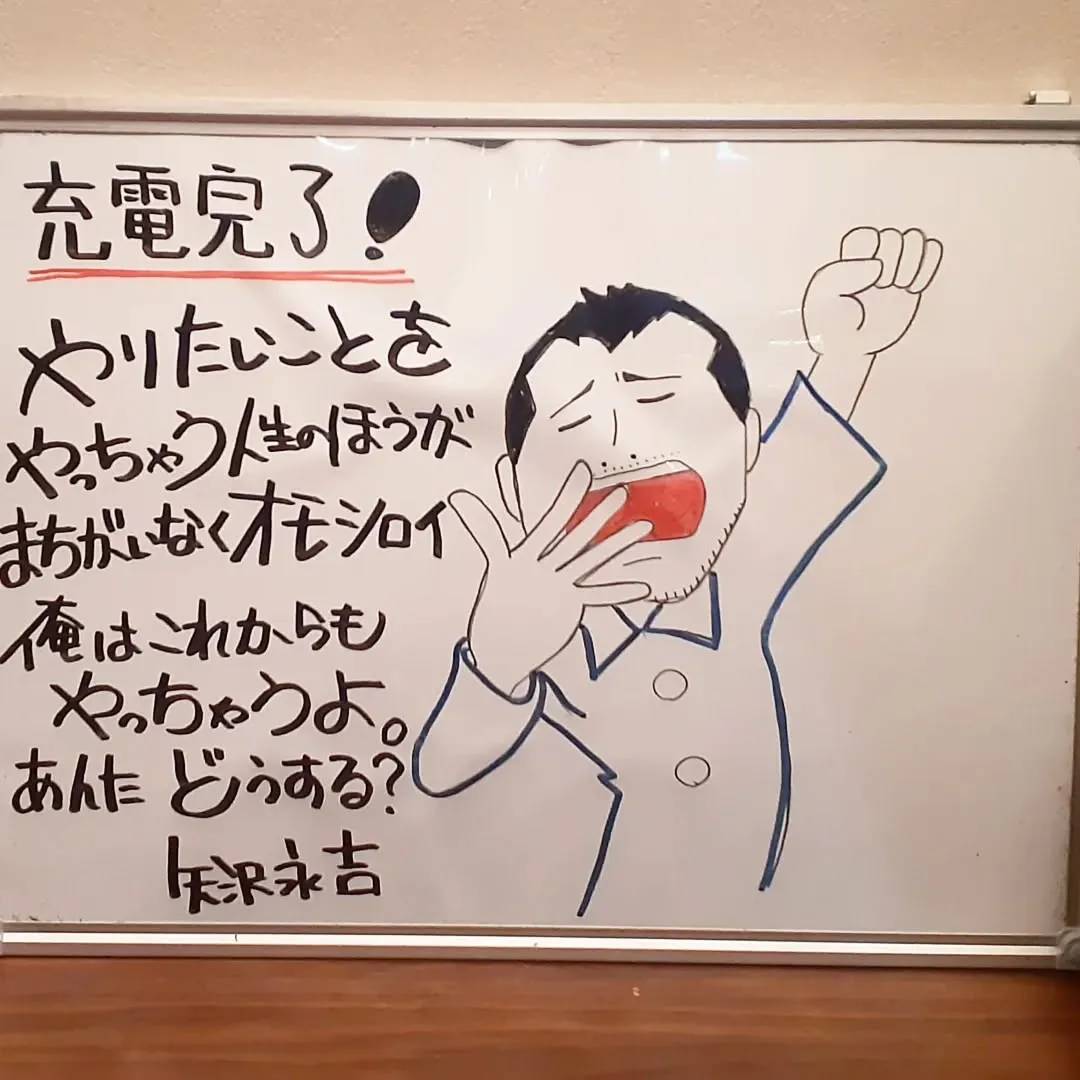 充電完了!
やりたいことを
やっちゃう人生のほうが
まちがいなくオモシロイ
俺はこれからも
やっちゃうよ。
あんた どうする?
矢沢永吉